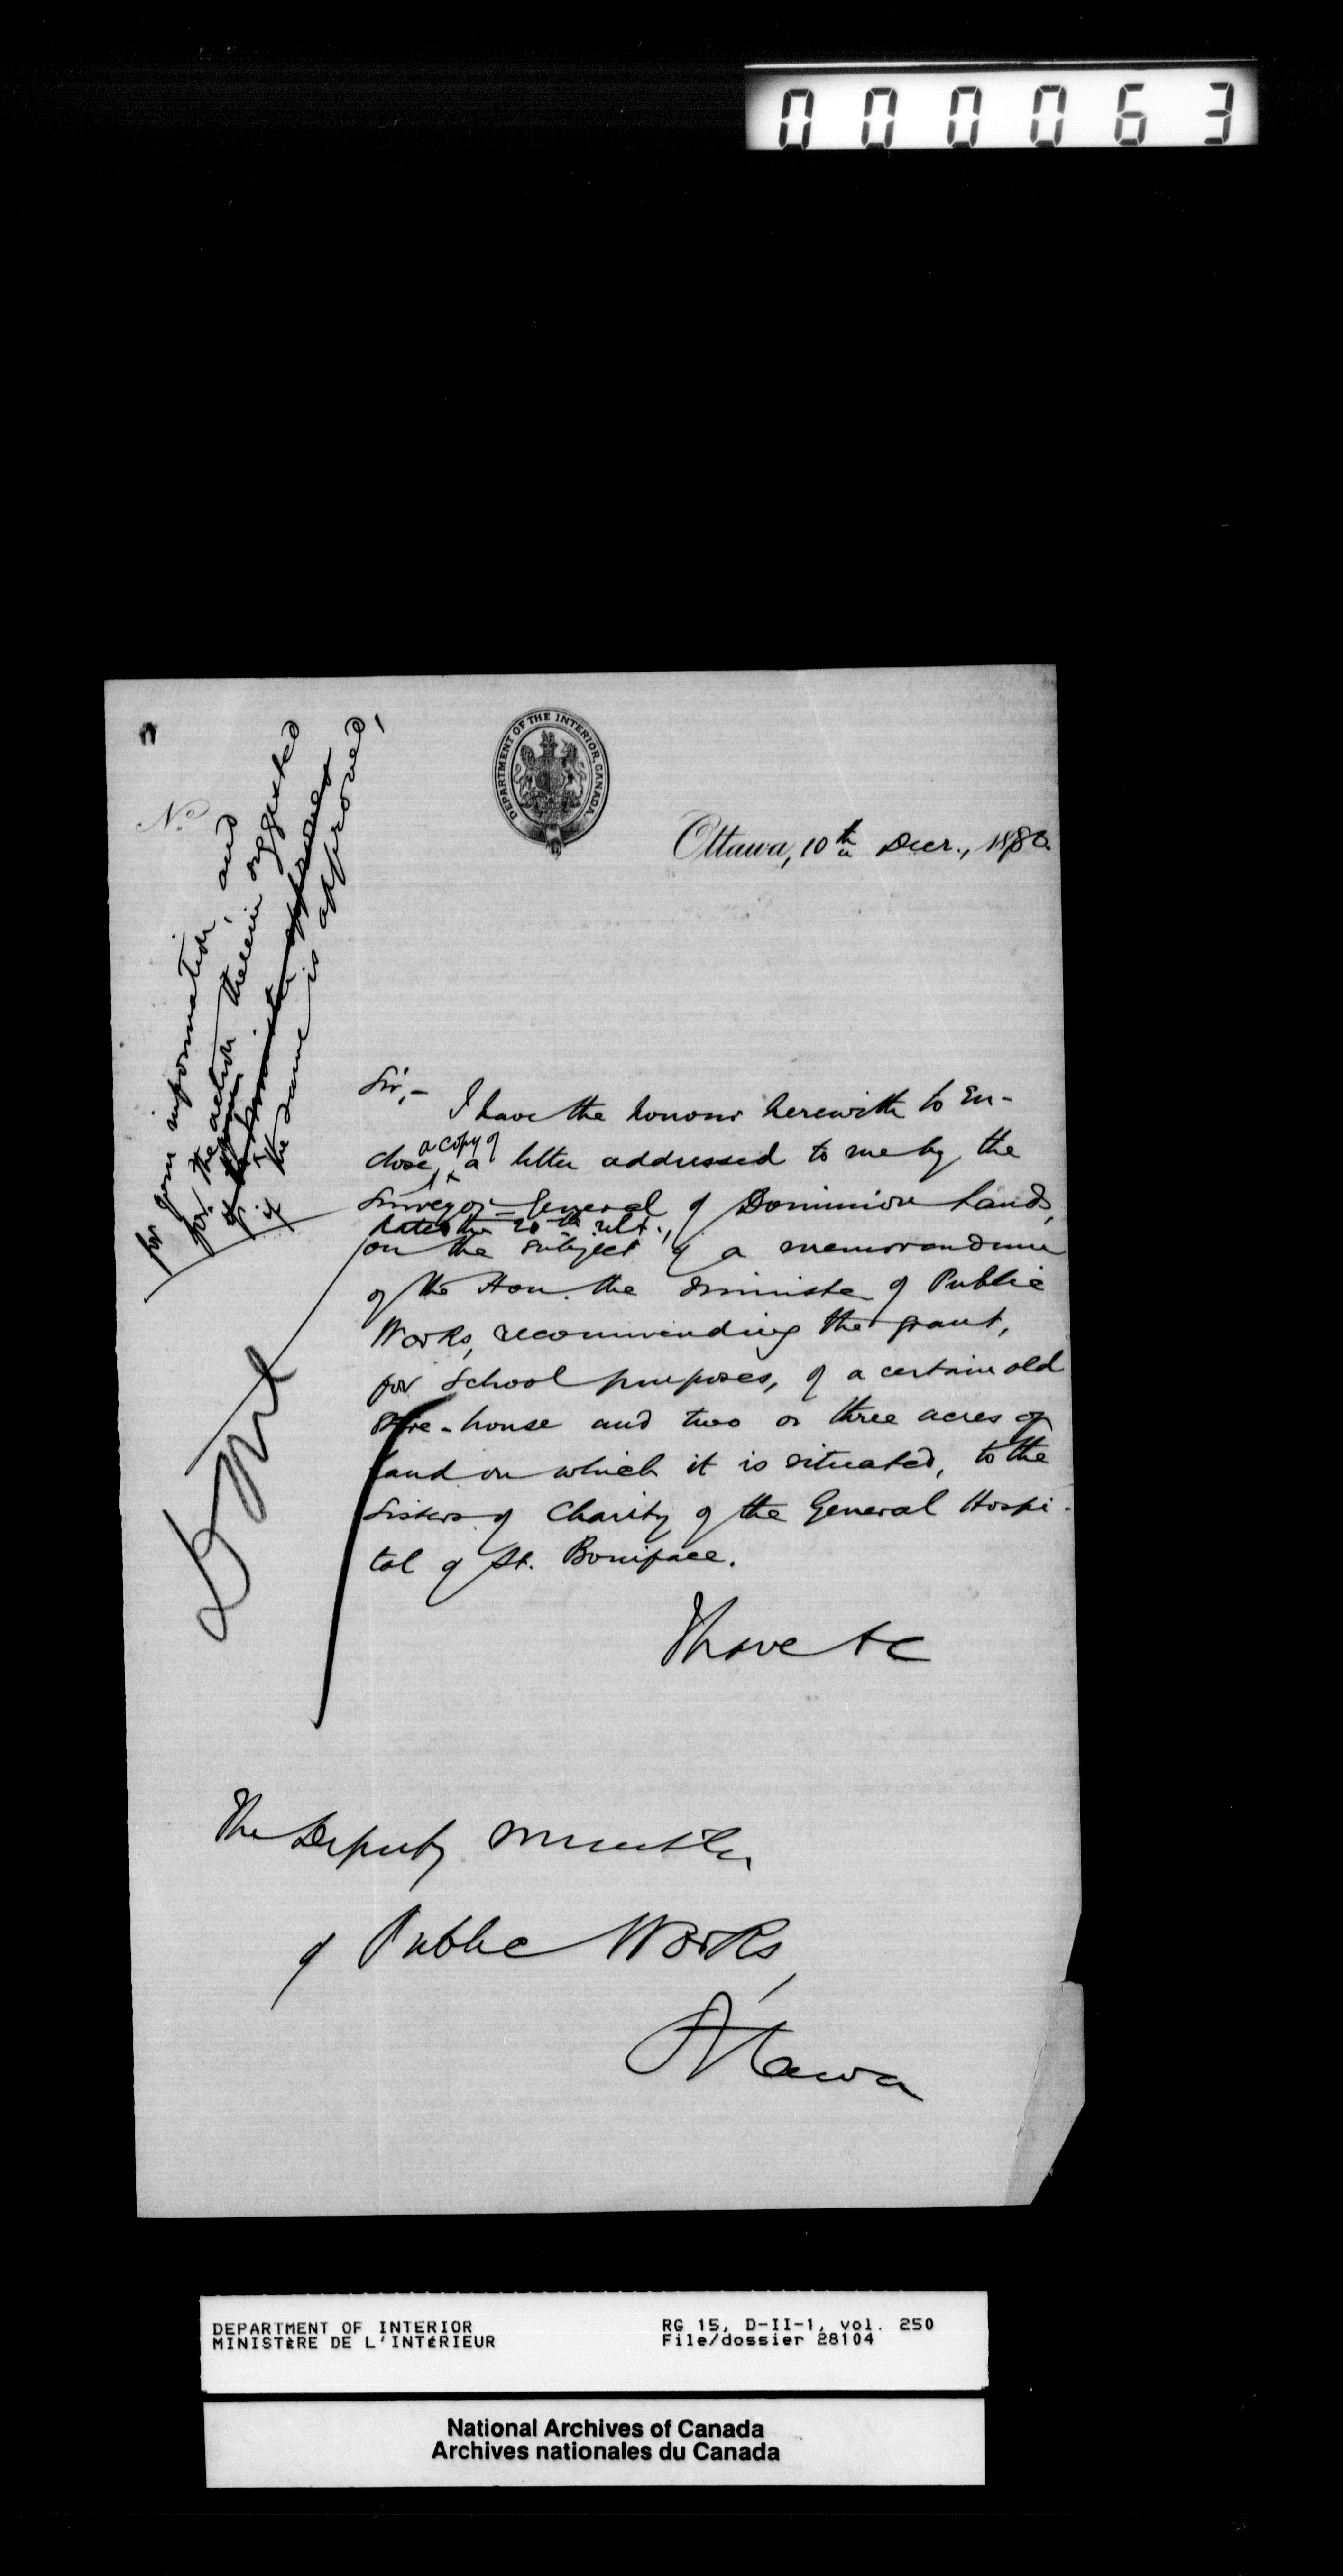 000063
DEPARTMENT OF THE INTERIOR, CANADA.
No.
Ottawa, 10th Decr., 1880.
for your information, and
for the action therein suggested
if the Minister approves
if the same is approved,
Sir,-
I have the honour herewith to en-
close, a copy of a letter addressed to me by the
Surveyor=General of Dominion Lands,
dated the 20th ult.,
on the subject of a memorandum
of the Hon. the Minister of Public
Works, recommending the grant,
for school purposes, of a certain old
store-house and two or three acres of
land on which it is situated, to the
Sisters of Charity of the General Hospi-
tal of St. Boniface.
I have &c
The Deputy Minister
of Public Works,
Ottawa
DEPARTMENT OF INTERIOR
MINISTÈRE DE L'INTÉRIEUR
RG 15, D-II-1, vol. 250
File/dossier 28104
National Archives of Canada
Archives nationales du Canada